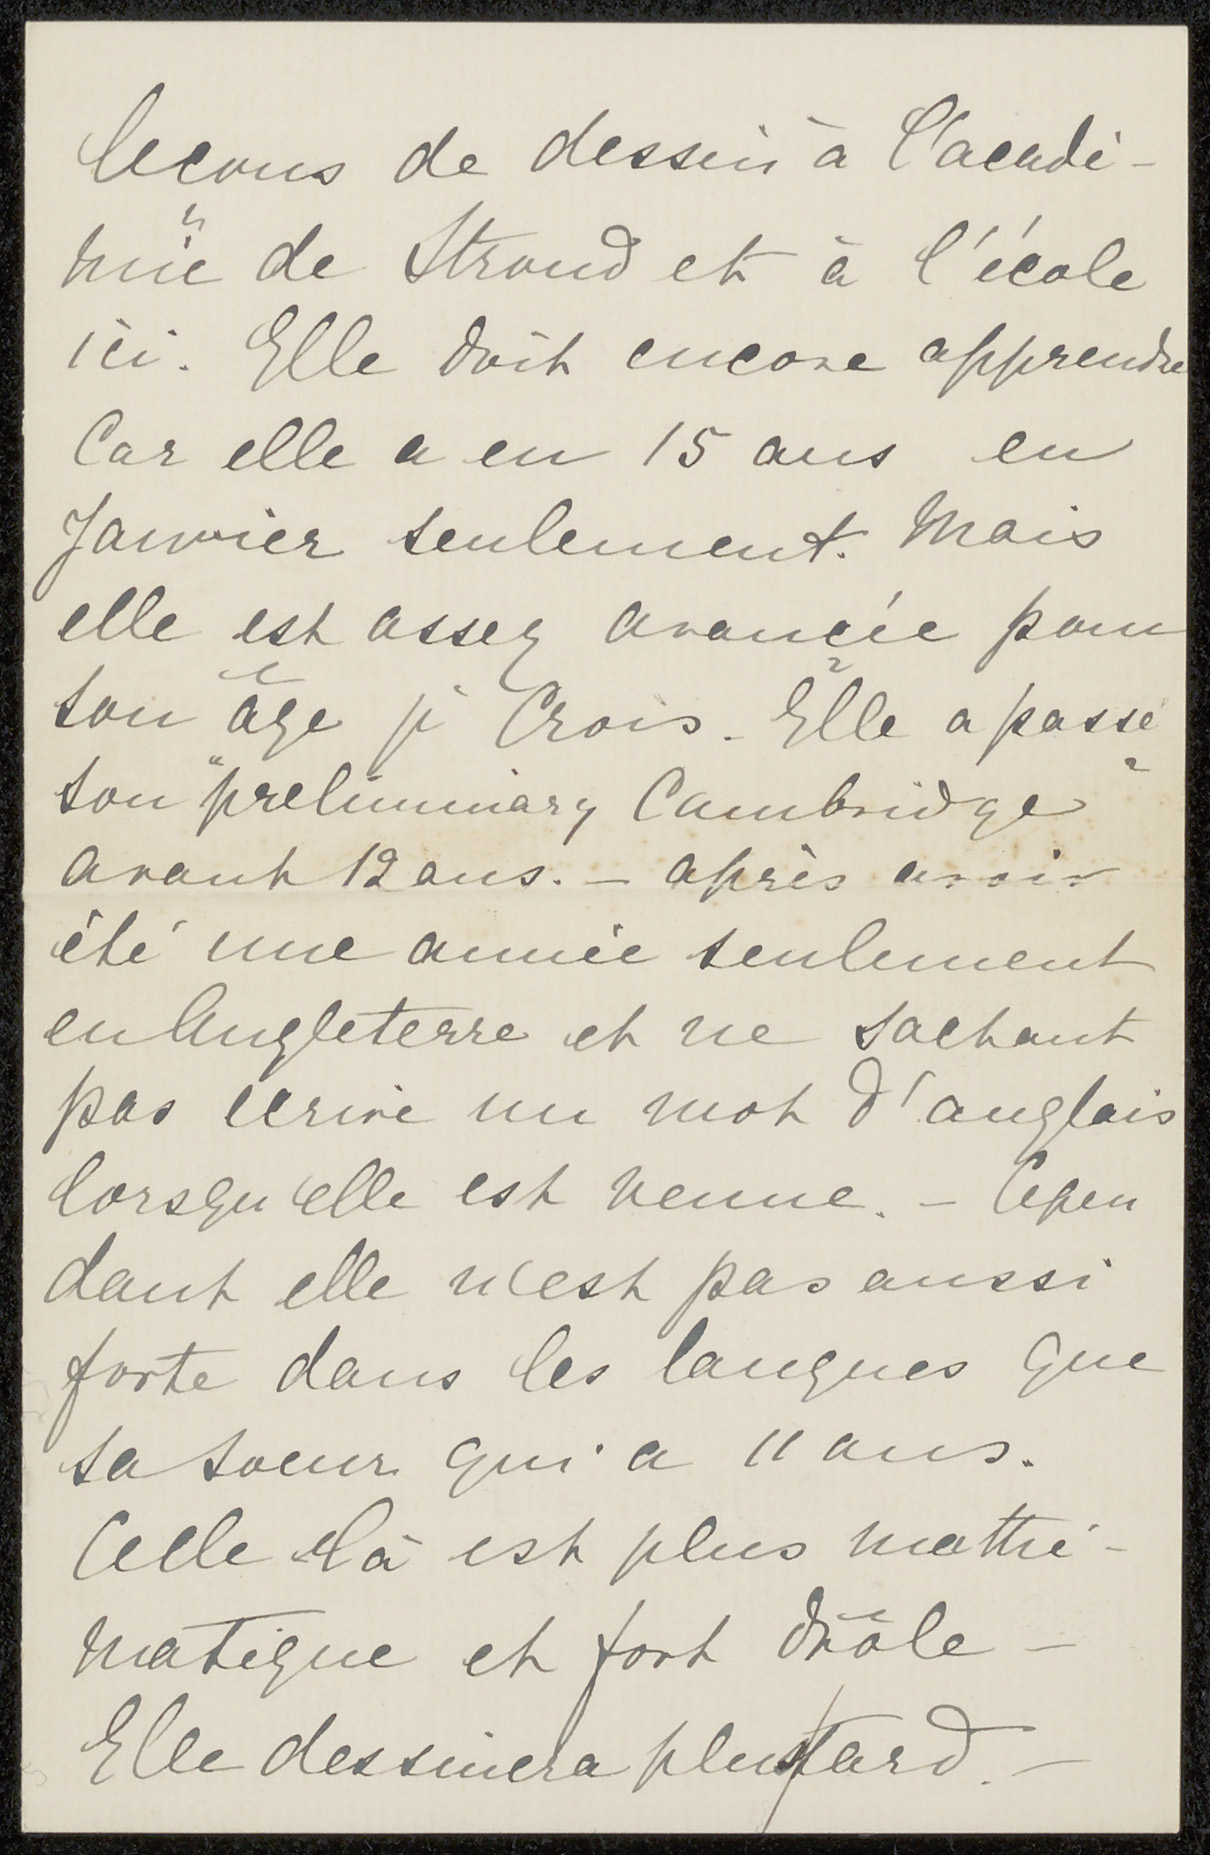 leçons de dessin à l'acadé-
mie de Stroud et à l'école
ici. Elle doit encore apprendre
Car elle a eu 15 ans en
Janvier seulement. Mais
elle est assez avancée pour
son âge je Crois. Elle a passé
son "preliminary Cambridge"
avant 12 ans. – après avoir
été une année seulement
en Angleterre et ne sachant
pas écrire un mot d'anglais
lorsqu'elle est venue. – Cepen
dant elle n'est pas aussi
forte dans les langues que
sa soeur qui a 11 ans.
Celle là est plus mathé-
matique et fort drôle –
Elle dessinera plus/tard. –